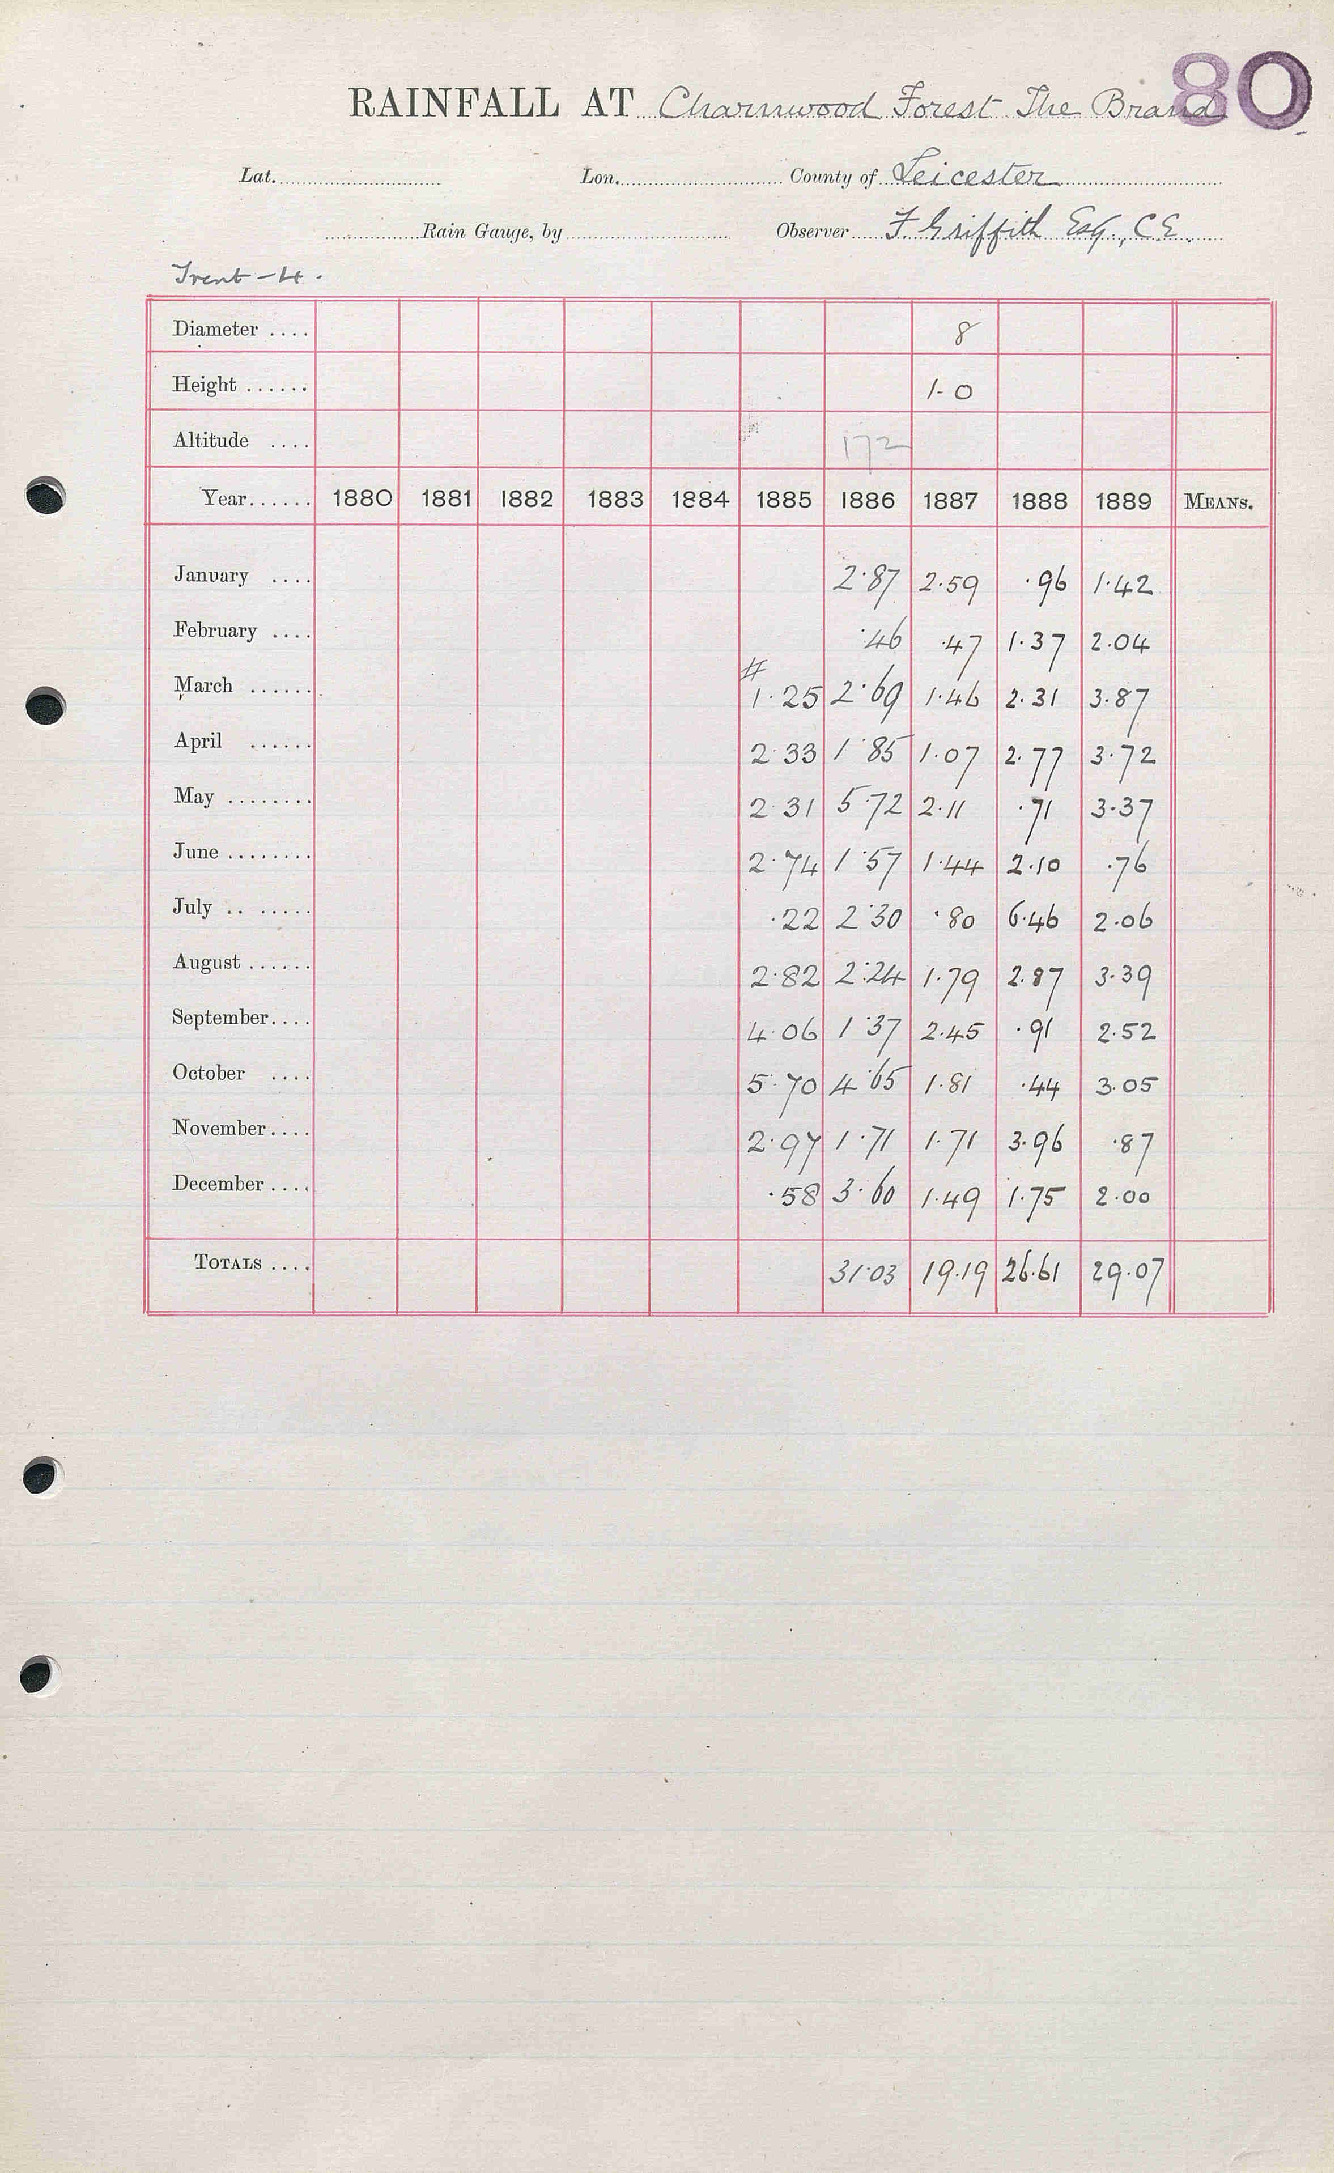 80
RAINFALL AT Charnwood Forest The Brand
Lat. Lon. County of Leicester
Rain Gauge, by Observer F Griffith Esq., C.E.
Trent - 4.
Diameter .... 8
Height ...... 1.0
Altitude .... 172
Year...... 1880 1881 1882 1883 1884 1885 1886 1887 1888 1889 MEANS.
January .... 2.87 2.59 .96 1.42
February .... .46 .47 1.37 2.04
March ...... # 1.25 2.69 1.46 2.31 3.87
April ...... 2.33 1.85 1.07 2.77 3.72
May ........ 2.31 5.72 2.11 .71 3.37
June ........ 2.74 1.57 1.44 2.10 .76
July .. ..... .22 2.30 .80 6.46 2.06
August ...... 2.82 2.24 1.79 2.87 3.39
September.... 4.06 1.37 2.45 .91 2.52
October .... 5.70 4.65 1.81 .44 3.05
November.... 2.97 1.71 1.71 3.96 .87
December .... .58 3.60 1.49 1.75 2.00
TOTALS .... 31.03 19.19 26.61 29.07